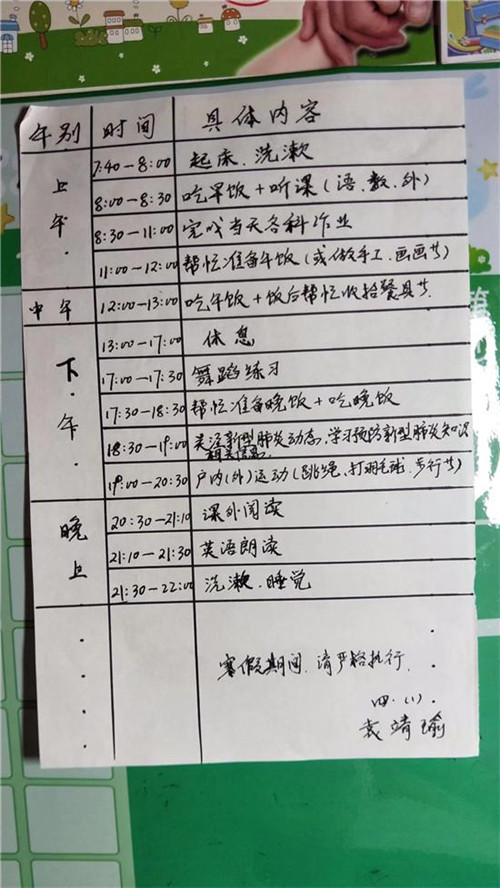 午别 时间 具体内容
上午. 7:40-8:00 起床.洗漱
8:00-8:30 吃早饭+听课(语.数.外)
8:30-11:00 完成当天各科作业
11:00-12:00 帮忙准备午饭(或做手工.画画等)
中午 12:00-13:00 吃午饭+饭后帮忙收拾餐具等.
下.午. 13:00-17:00 休息
17:00-17:30 舞蹈练习
17:30-18:30 帮忙准备晚饭+吃晚饭
18:30-19:00 关注新型肺炎动态,学习预防新型肺炎知识
相关信息
19:00-20:30 户内(外)运动(跳绳、打羽毛球.步行等)
晚上 20:30-21:10 课外阅读
21:10-21:30 英语朗读
21:30-22:00 洗漱.睡觉
寒假期间.请严格执行.
四.(1)
袁靖瑜